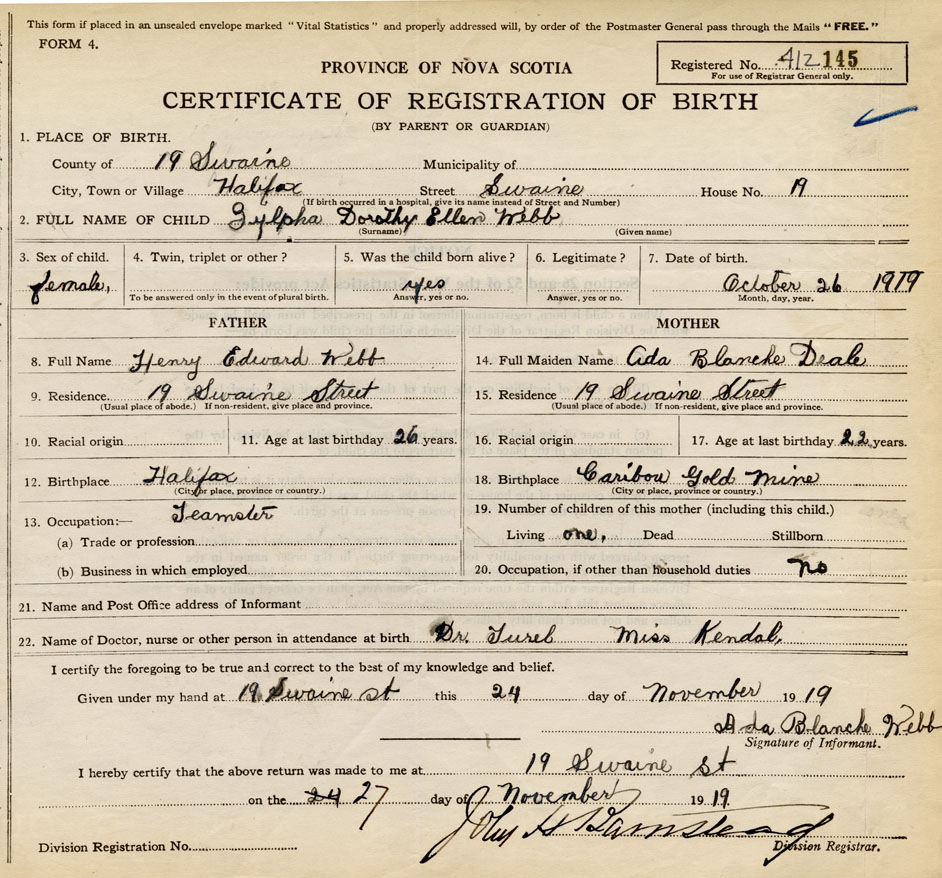 This form if placed in an unsealed envelope marked "Vital Statistics" and properly addressed will, by order of the Postmaster General pass through the Mails "FREE."
FORM 4.
Registered No. 412 145
For use of Registrar General only.
PROVINCE OF NOVA SCOTIA
CERTIFICATE OF REGISTRATION OF BIRTH
(BY PARENT OR GUARDIAN)
1. PLACE OF BIRTH.
County of 19 Swaine Municipality of
City, Town or Village Halifax Street Swaine House No. 19
(If birth occurred in a hospital, give its name instead of Street and Number)
2. FULL NAME OF CHILD Zylpha Dorothy Ellen Webb
(Surname) (Given name)
3. Sex of child. 4. Twin, triplet or other? 5. Was the child born alive? 6. Legitimate? 7. Date of birth.
female, yes October 26 1919
To be answered only in the event of plural birth. Answer, yes or no. Answer, yes or no. Month, day, year.
FATHER MOTHER
8. Full Name Henry Edward Webb 14. Full Maiden Name Ada Blanche Deale
9. Residence. 19 Swaine Street 15. Residence 19 Swaine Street
(Usual place of abode.) If non-resident, give place and province. (Usual place of abode.) If non-resident, give place and province.
10. Racial origin 11. Age at last birthday 26 years. 16. Racial origin 17. Age at last birthday 22 years.
12. Birthplace Halifax 18. Birthplace Caribou Gold Mine
(City or place, province or country.) (City or place, province or country.)
13. Occupation:— Teamster 19. Number of children of this mother (including this child.)
(a) Trade or profession Living one, Dead Stillborn
(b) Business in which employed 20. Occupation, if other than household duties no
21. Name and Post Office address of Informant
22. Name of Doctor, nurse or other person in attendance at birth Dr. Miss Kendal,
I certify the foregoing to be true and correct to the best of my knowledge and belief.
Given under my hand at 19 Swaine st this 24 day of November 19 19
Ada Blanche Webb
Signature of Informant.
I hereby certify that the above return was made to me at 19 Swaine st
on the 24 27 day of November 19 19.
John H Barnstead
Division Registration No. Division Registrar.